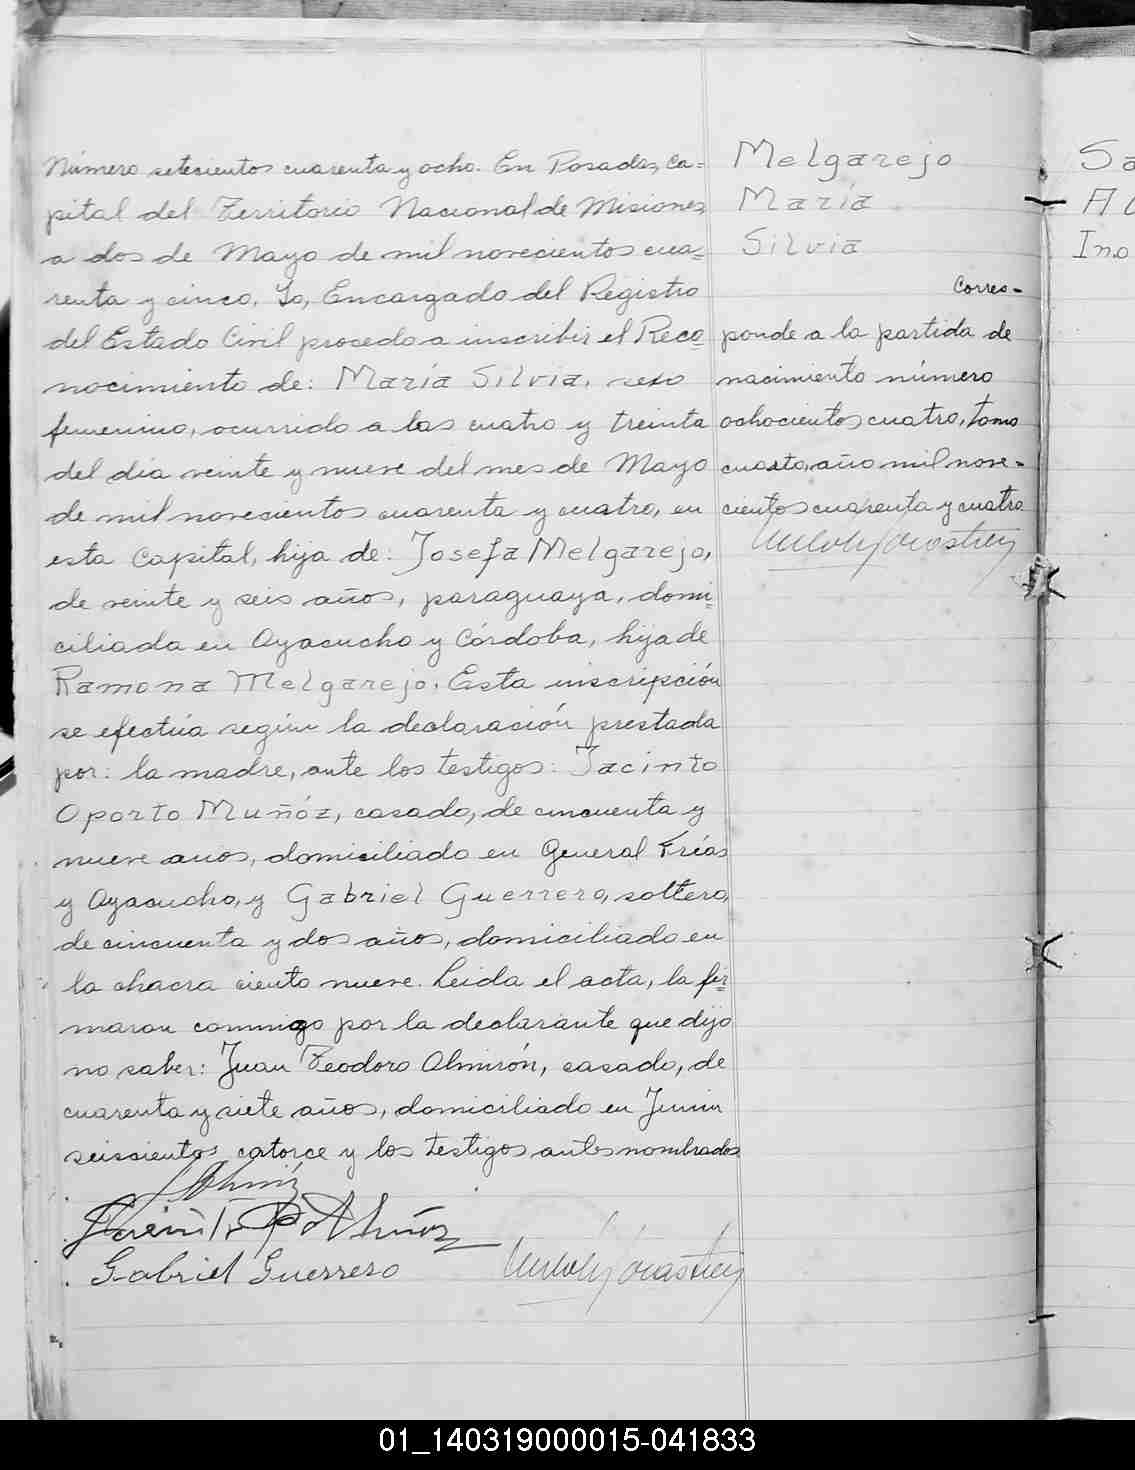 Número setecientos cuarenta y ocho. En Posadas, Ca=
pital del Territorio Nacional de Misiones
a dos de Mayo de mil novecientos cua=
renta y cinco, Yo, Encargado del Registro
del Estado Civil procedo a inscribir el Reco
nocimiento de: María Silvia, sexo
femenino, ocurrido a las cuatro y treinta
del día veinte y nueve del mes de Mayo
de mil novecientos cuarenta y cuatro, en
esta Capital, hija de: Josefa Melgarejo,
de veinte y seis años, paraguaya, domi=
ciliada en Ayacucho y Córdoba, hija de
Ramona Melgarejo. Esta inscripción
se efectúa según la declaración prestada
por: la madre, ante los testigos: Jacinto
Oporto Muñóz, casado, de cincuenta y
nueve anos, domiciliado en General Frías
y Ayacucho, y Gabriel Guerrero, soltero,
de cincuenta y dos años, domiciliado en
la chacra ciento nueve. Leida el acta, la fir=
maron conmigo por la declarante que dijo
no saber: Juan Teodoro Almirón, casado, de
cuarenta y siete años, domiciliado en Junin
seiscientos catorce y los testigos antes nombrados
Gabriel Guerrero
Melgarejo
María
Silvia
Corres-
ponde a la partida de
nacimiento número
ochocientos cuatro, tomo
cuarto, año mil nove-
cientos cuarenta y cuatro
Sa
Al
Ino
01_140319000015-041833